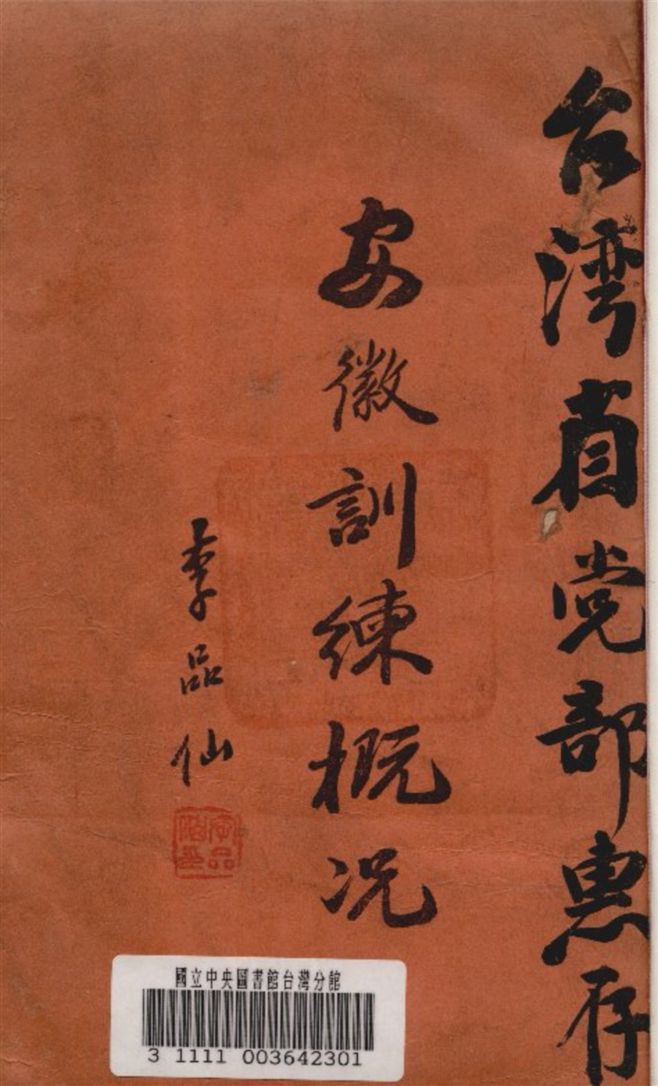 台湾省党部惠存
安徽訓練概況
李品仙
李品仙印
國立中央圖書館台灣分館
3 1111 003642301